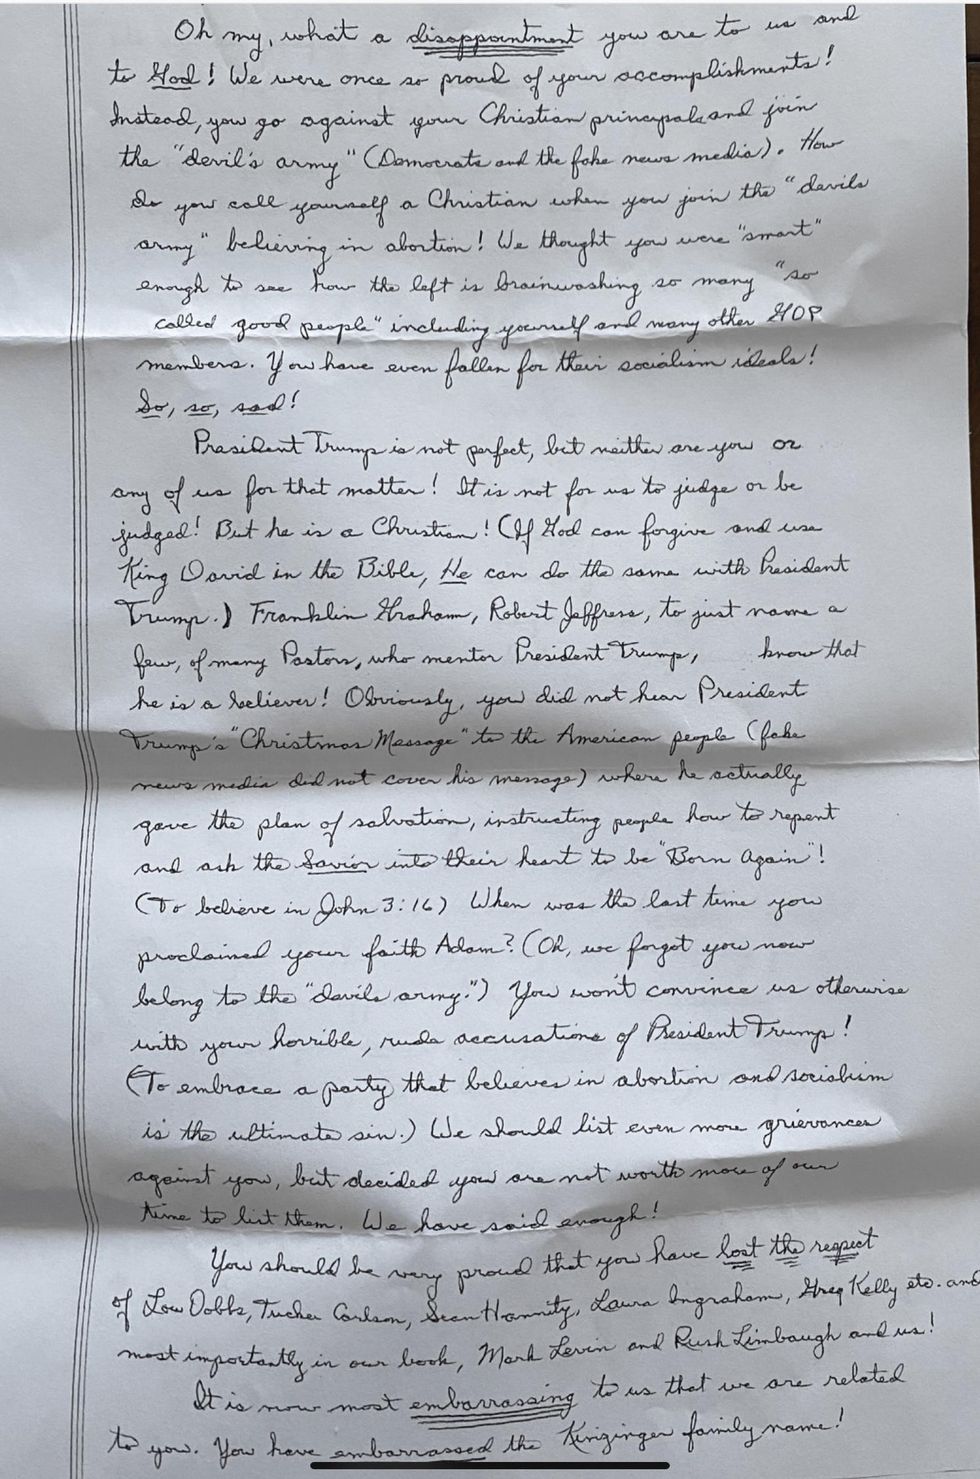 Oh my, what a disappointment you are to us and
to God! We were once so proud of your accomplishments!
Instead, you go against your Christian principals and join
the "devil's army" (Democrats and the fake news media). How
do you call yourself a Christian when you join the "devils
army" believing in abortion! We thought you were "smart"
enough to see how the left is brainwashing so many "so
called good people" including yourself and many other GOP
members. You have even fallen for their socialism ideals!
So, so, sad!
President Trump is not perfect, but neither are you or
any of us for that matter! It is not for us to judge or be
judged! But he is a Christian! (If God can forgive and use
King David in the Bible, He can do the same with President
Trump.) Franklin Graham, Robert Jeffress, to just name a
few, of many Pastors, who mentor President Trump, know that
he is a believer! Obviously, you did not hear President
Trump's "Christmas Message" to the American people (fake
news media did not cover his message) where he actually
gave the plan of salvation, instructing people how to repent
and ask the Savior into their heart to be "Born Again"!
(To believe in John 3:16) When was the last time you
proclaimed your faith Adam? (Oh, we forgot you now
belong to the "devils army.") You won't convince us otherwise
with your horrible, rude accusations of President Trump!
(To embrace a party that believes in abortion and socialism
is the ultimate sin.) We should list even more grievances
against you, but decided you are not worth more of our
time to list them. We have said enough!
You should be very proud that you have lost the respect
of Lou Dobbs, Tucker Carlson, Sean Hannity, Laura Ingraham, Greg Kelly etc. and
most importantly in our book, Mark Levin and Rush Limbaugh and us!
It is now most embarrassing to us that we are related
to you. You have embarrassed the Kinzinger family name!